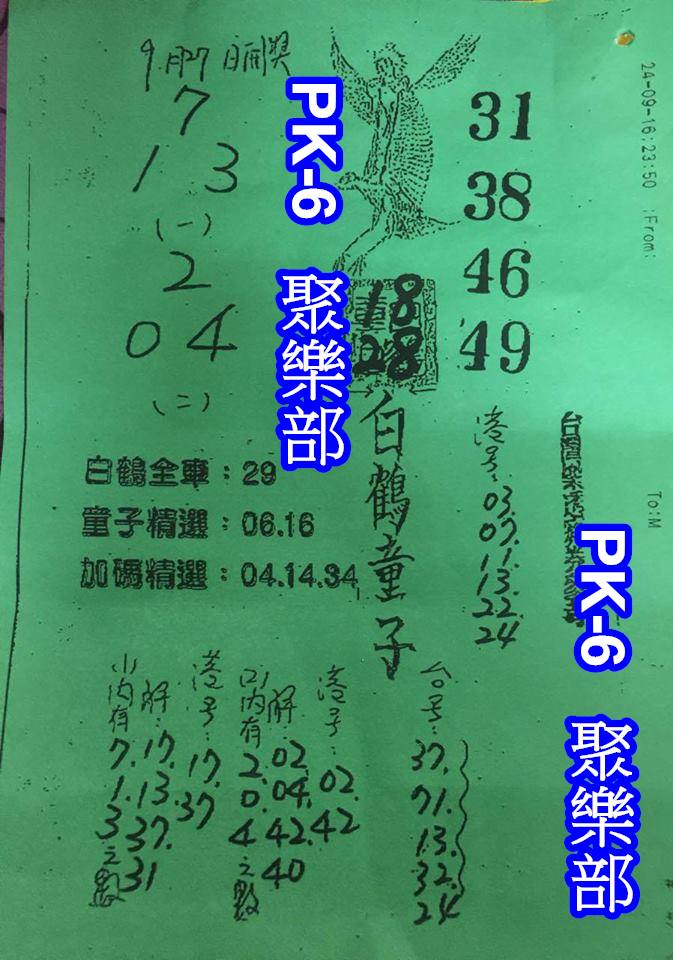 24-09-16;23:50 ;From:
To:M
9月27日開獎
7
1 3
(一)
2
0 4
(二)
31
38
46
49
18
28
白鶴童子
PK-6 聚樂部
白鶴全車：29
童子精選：06.16
加碼精選：04.14.34
港号：03.07.11.13.22.24
PK-6 聚樂部
(1)內有7.1.3之數
解：17.13.37.31
港号：17.37
(2)內有2.0.4之數
解：02.04.42.40
港号：02.42
台号：37.71.13.32.24